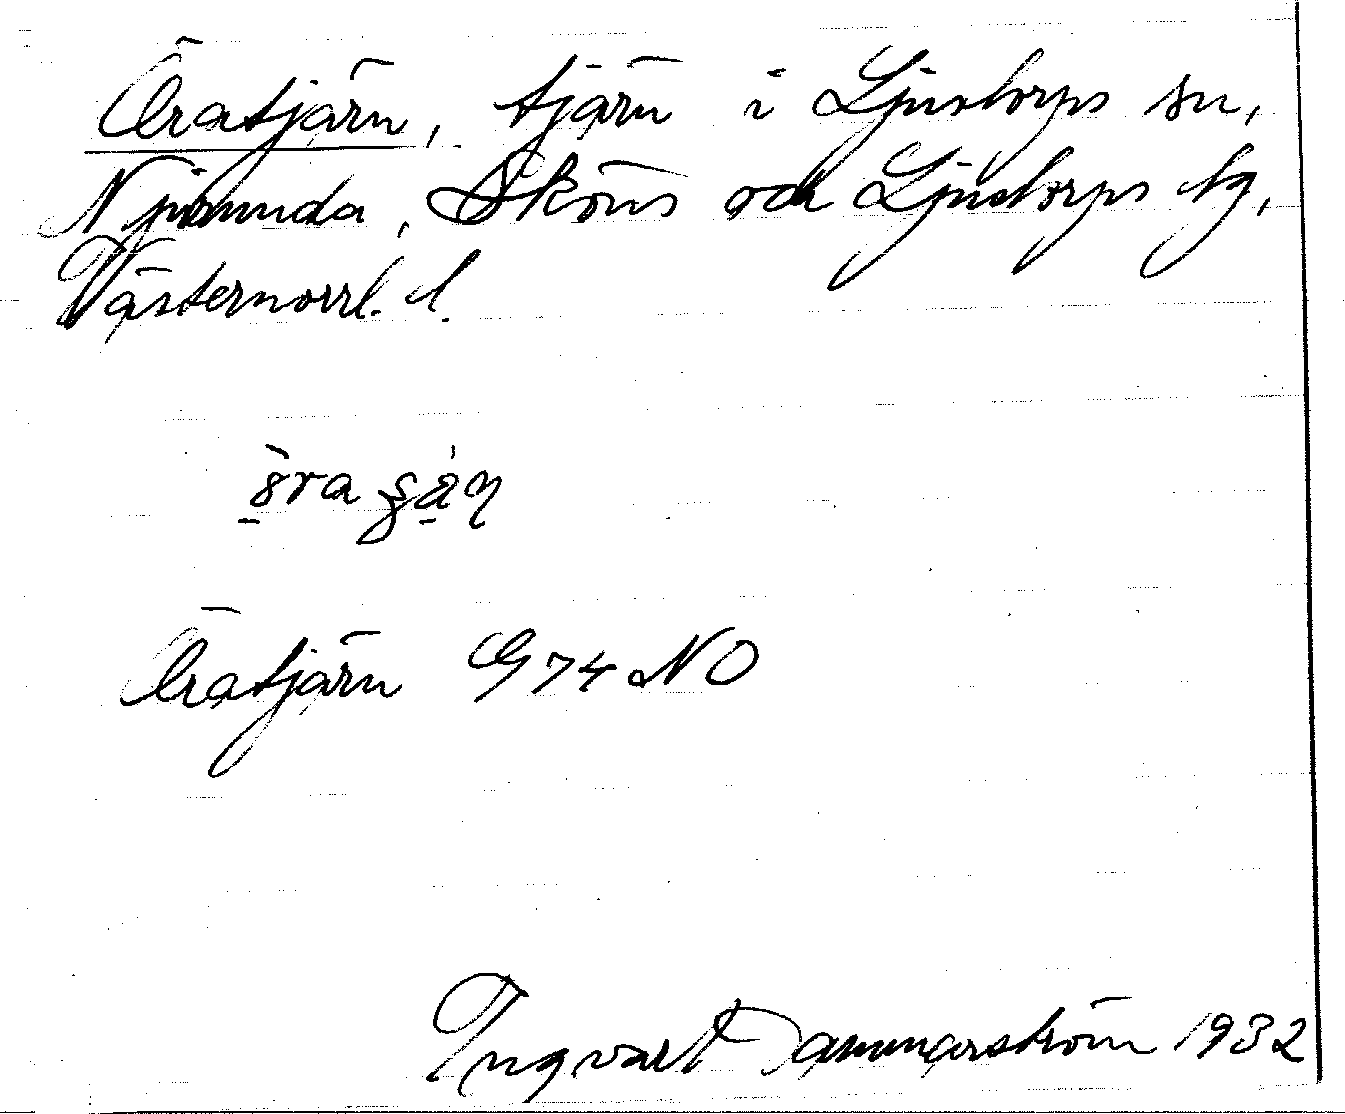 Öratjärn, tjärn i Ljustorps sn,
Njurunda, Sköns och Ljustorps tg,
Västernorrl. l.
Öratjärn G 74 NO
Ingvart Dammarström 1932